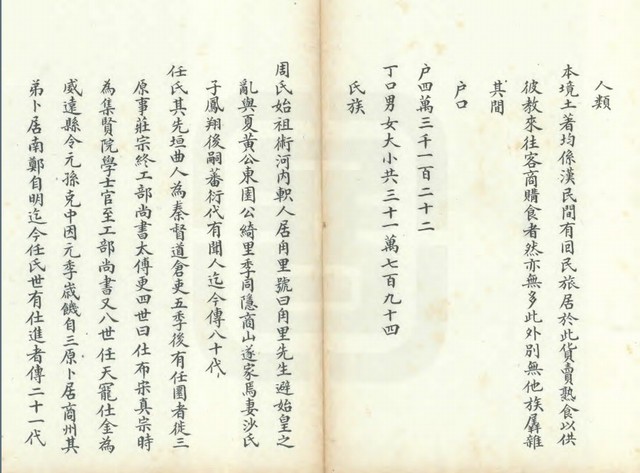 人類
本境土著均係漢民間有回民旅居於此貨賣熟食以供
彼教來往客商購食者然亦無多此外別無他族羼雜
其間
户口
户四萬三千一百二十二
丁口男女大小共三十一萬七百九十四
氏族
周氏始祖術河内軹人居甪里號曰甪里先生避始皇之
亂與夏黄公東園公綺里季同隱商山遂家焉妻沙氏
子鳳翔後嗣蕃衍代有聞人迄今傳八十代
任氏其先垣曲人為秦督道倉吏五季後有任圜者徙三
原事莊宗終工部尚書太傅更四世曰仕布宋真宗時
為集賢院學士官至工部尚書又八世任天寵仕金為
威遠縣令元孫克中因元季歲饑自三原卜居商州其
弟卜居南鄭自明迄今任氏世有仕進者傳二十一代